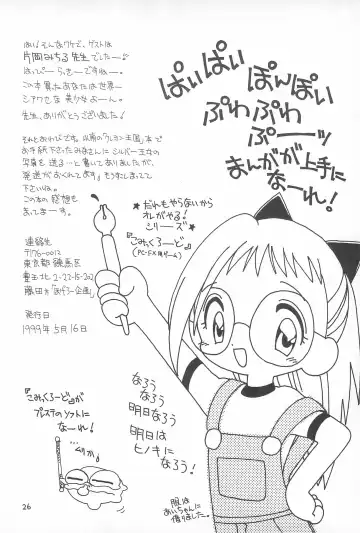 はい!そんなワケで、ゲストは
片岡みちる先生でしたー♪
はっぴー らっきー ですねー。
この本買ったあなたは世界一
シアワセな 美少女よーん。
先生、ありがとうございました!
それとおわびです。以前の「クレヨン王国」本で
お手紙下さったみなさんに シルバー王女の
写真を送る…と書いてありましたが、
発送がおくれてます。もう少しまってて
下さいね。
この本の感想も
まってまーす。
連絡先
〒176-0012
東京都 練馬区
豊玉北2-22-15-202
発行日
1999年5月16日
ぱいぱい ぽんぽい
ぷわぷわ
ぷーーッ
まんがが 上手に
なーれ!
★だれもやらないから
オレがやる!
シリーズ★
『こみっくろーど』
(PC-FX用ゲーム)
なろう
なろう
明日なろう
明日は
ヒノキに
なろう!
『こみっくろーど』が
プレステのソフトに
なーれ!
…ムリか。
服は
あいちゃんに
借りました。
26